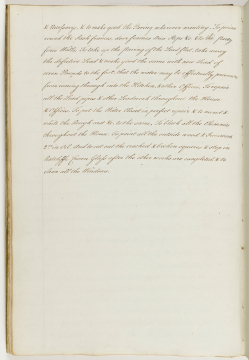 & necessary, & to make good the Paving wherever wanting. To point
round the Sash frames, door frames, Door Steps &c. to the party
from Walls. To take up the paving of the Lead flat, take away
the defective Lead & make good the same with new Lead of
seven Pounds to the foot that the water may be effectually prevented
from coming through into the Kitchen, & other Offices. To repair
all the Lead pipes & other Leadwork throughout the House
& Offices. To put the Water Closet in perfect repair & to mend &
make the Rough cast &c. to the same. To black all the Chimnies
throughout the House. To paint all the outside wood & Ironwork
in Oil and to cut out the cracked & broken squares & stop in
Ratcliffe Crown Glass after the other works are completed & to
clean all the Windows.